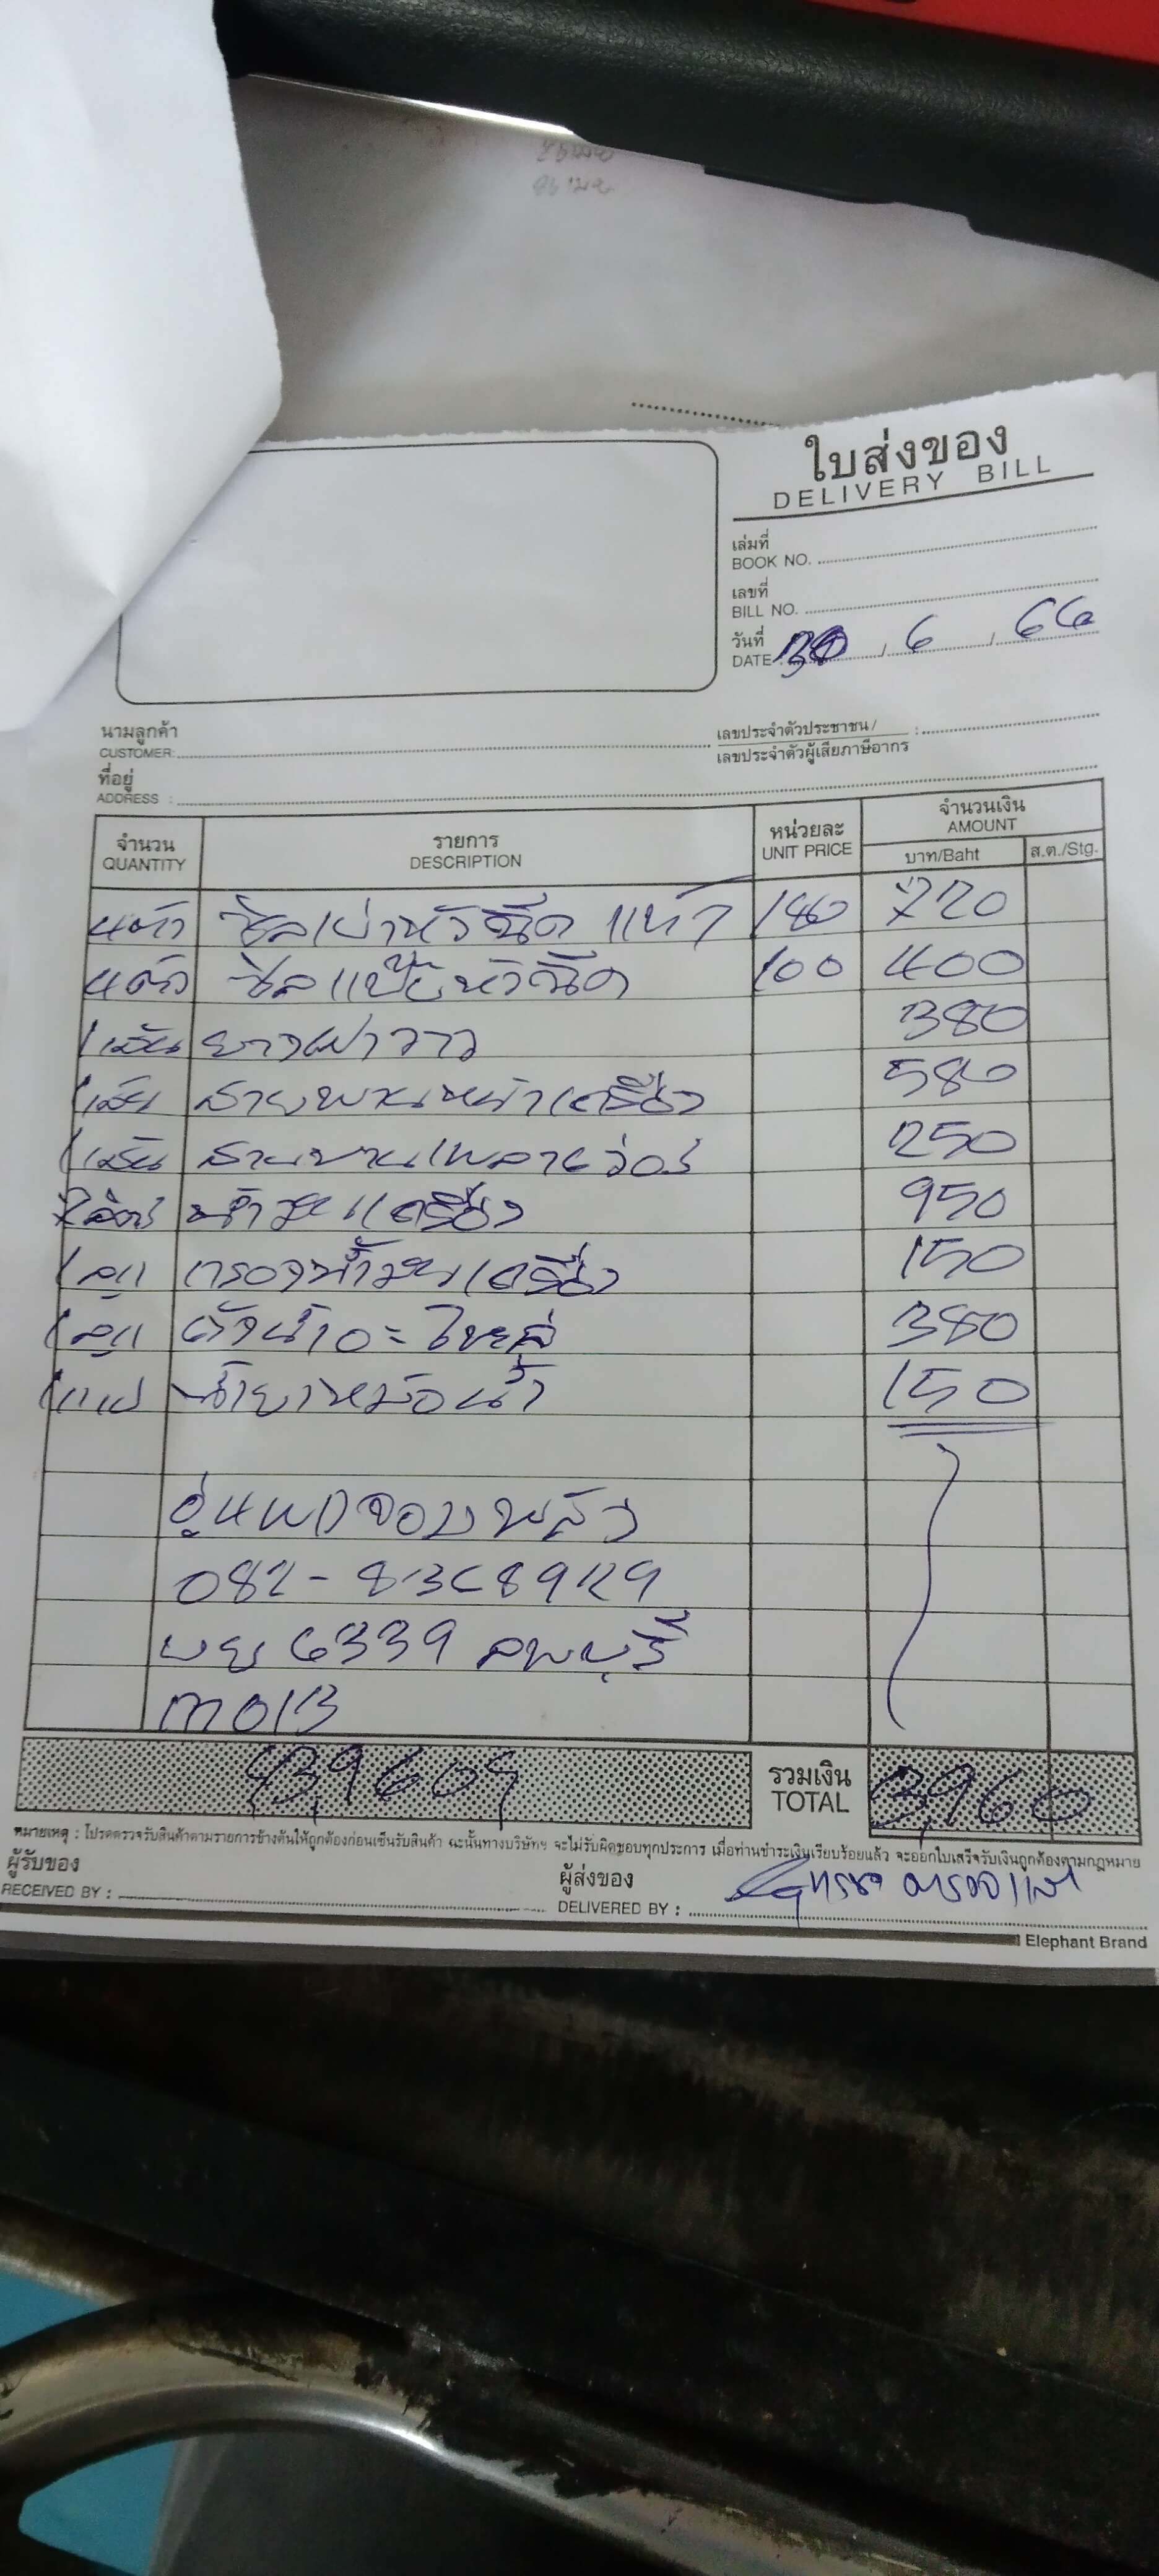 ใบส่งของ
DELIVERY BILL
เล่มที่
BOOK NO.
เลขที่
BILL NO.
วันที่
DATE : 30 / 6 / 66
นามลูกค้า
CUSTOMER:
เลขประจำตัวประชาชน/ :
เลขประจำตัวผู้เสียภาษีอากร
ที่อยู่
ADDRESS :
จำนวน รายการ หน่วยละ จำนวนเงิน
QUANTITY DESCRIPTION UNIT PRICE AMOUNT
บาท/Baht ส.ต./Stg.
4ตัว ซีลเบ้าหัวฉีด แท้ 180 720
4ตัว ซีลแป๊บหัวฉีด 100 400
1เส้น ยางฝาวาว 380
1เส้น สายพานหน้าเครื่อง 580
1เส้น สายพานเพลาเวอร์ 250
7ลิตร น้ำมันเครื่อง 950
1ลูก กรองน้ำมันเครื่อง 150
1ลูก 380
1แกป น้ำยาหม้อน้ำ 150
082-
บย 6339 ลพบุรี
รวมเงิน 3,960
TOTAL
หมายเหตุ : โปรดตรวจรับสินค้าตามรายการข้างต้นให้ถูกต้องก่อนเซ็นรับสินค้า ฉะนั้นทางบริษัทฯ จะไม่รับผิดชอบทุกประการ เมื่อท่านชำระเงินเรียบร้อยแล้ว จะออกใบเสร็จรับเงินถูกต้องตามกฎหมาย
ผู้รับของ
RECEIVED BY :
ผู้ส่งของ
DELIVERED BY :
Elephant Brand